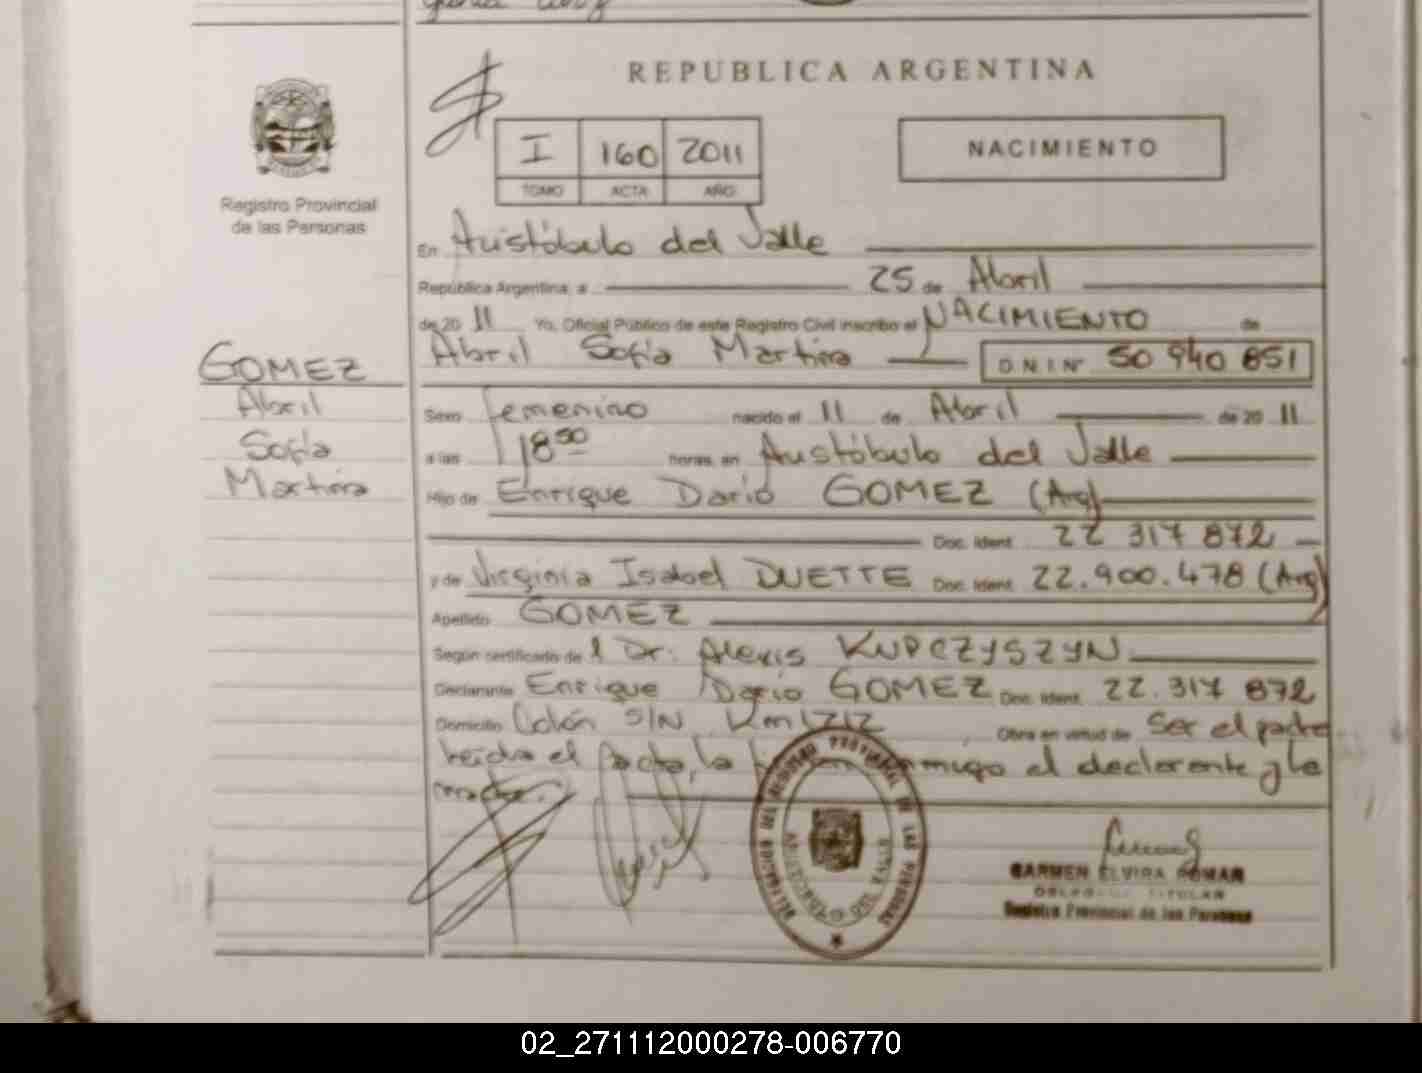 REPUBLICA ARGENTINA
I 160 2011
TOMO ACTA AÑO
NACIMIENTO
Registro Provincial
de las Personas
GOMEZ
Abril
Sofía
Martina
En Aristóbulo del Valle
República Argentina, a 25 de Abril
de 20 11 Yo, Oficial Público de este Registro Civil inscribo el NACIMIENTO de
Abril Sofía Martina D N I Nº 50 940 851
Sexo femenino nacido el 11 de Abril de 20 11
a las 18 50 horas, en Aristóbulo del Valle
Hijo de Enrique Dario GOMEZ (Arg)
Doc. Ident. 22 317 872
y de Virginia Isabel DUETTE Doc. Ident. 22.900.478 (Arg)
Apellido GOMEZ
Según certificado de l Dr. Alexis KUPCZYSZYN
Declarante Enrique Dario GOMEZ Doc. Ident. 22.317 872
Domicilio Colón S/N Km 1212 Obra en virtud de Ser el padre
leida el acta, la conmigo el declarante y la
DELEGACION DEL REGISTRO PROVINCIAL DE LAS PERSONAS
ARISTOBULO DEL VALLE
CARMEN ELVIRA ROMAN
TITULAR
Registro Provincial de las Personas
02_271112000278-006770